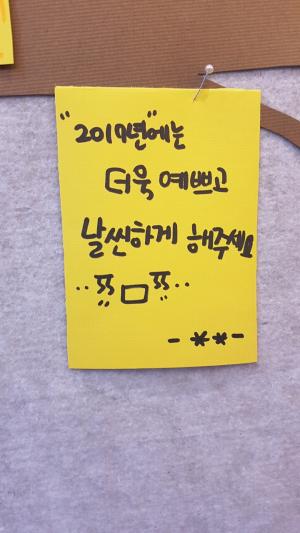 "2017년"에는
더욱 예쁘고
날씬하게 해주세요
..ㅠㅁㅠ..
- ** -